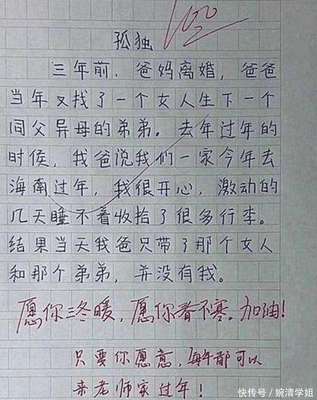 100
孤独
三年前，爸妈离婚，爸爸
当年又找了一个女人生下一个
同父异母的弟弟。去年过年的
时候，我爸说我们一家今年去
海南过年，我很开心，激动的
几天睡不着收拾了很多行李。
结果当天我爸只带了那个女人
和那个弟弟，并没有我。
愿你三冬暖，愿你春不寒。加油！
只要你愿意，每年都可以
来老师家过年！
快传号／婉清学姐